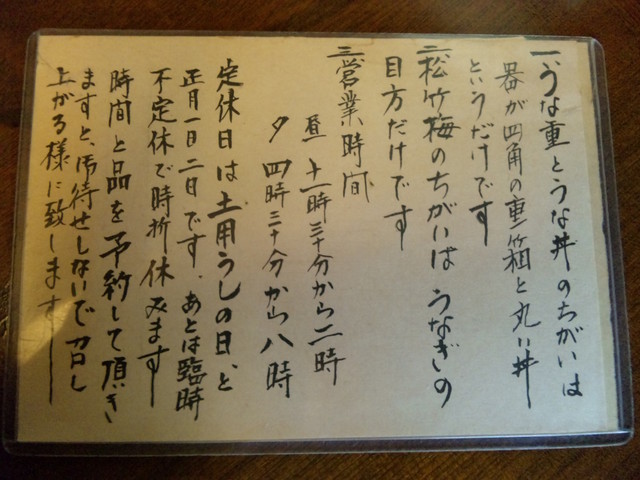 一、うな重とうな丼のちがいは
器が四角の重箱と丸い丼
というだけです
二、松竹梅のちがいは うなぎの
目方だけです
三、営業時間
昼 十一時三十分から二時
夕 四時三十分から八時
定休日は土用うしの日、と
正月一日二日です、あとは臨時
不定休で時折休みます
時間と品を予約して頂き
ますと、お待せしないで召し
上がる様に致します